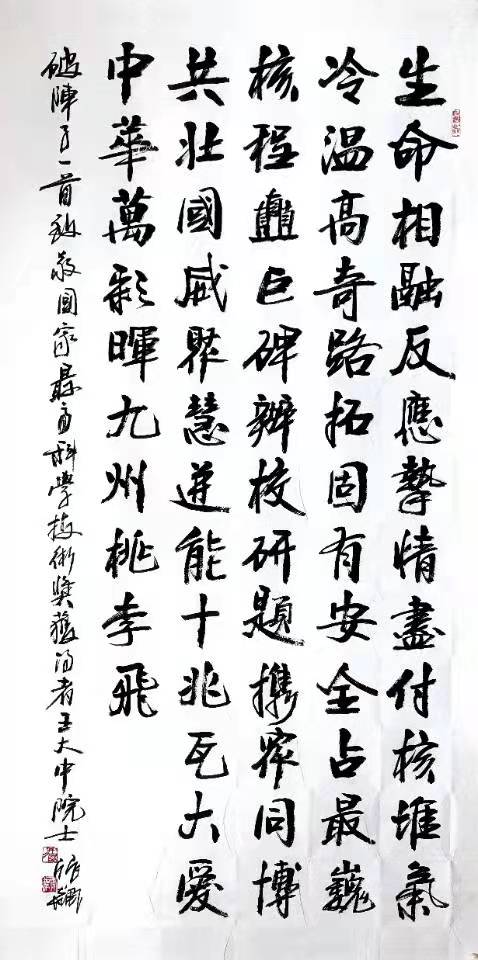 生命相融反應摯情盡付核堆氣
冷溫高奇路拓固有安全占最巍
核程矗巨碑辦校研題攜眾同博
共壯國威聚慧迸能十兆瓦大愛
中華萬彩暉九州桃李飛
破陣子一首致敬國家最高科學技術獎獲得者王大中院士